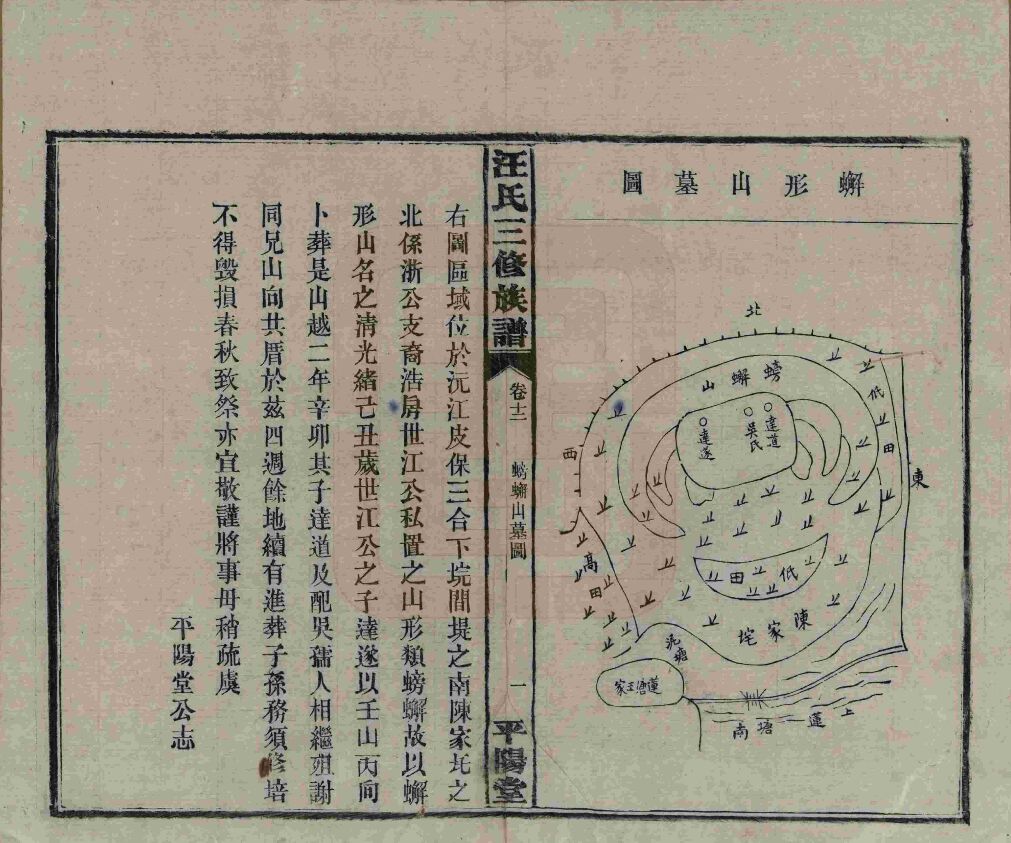 蠏形山墓圖
北
螃蠏山
達道
吳氏
達遂
低田
東
西
高田
低田
陳家垞
蓮塘王家
上蓮塘
南
汪氏三修族譜
卷十二
螃蠏山墓圖
一
平陽堂
右圖區域位於沅江皮保三合下垸間堤之南陳家圫之
北係浙公支裔浩房世江公私置之山形類螃蠏故以蠏
形山名之清光緒己丑歲世江公之子達遂以壬山丙向
卜葬是山越二年辛卯其子達道及配吳孺人相繼殂謝
同兄山向共厝於茲四週餘地續有進葬子孫務須修培
不得毀損春秋致祭亦宜敬謹將事毋稍疏虞
平陽堂公志